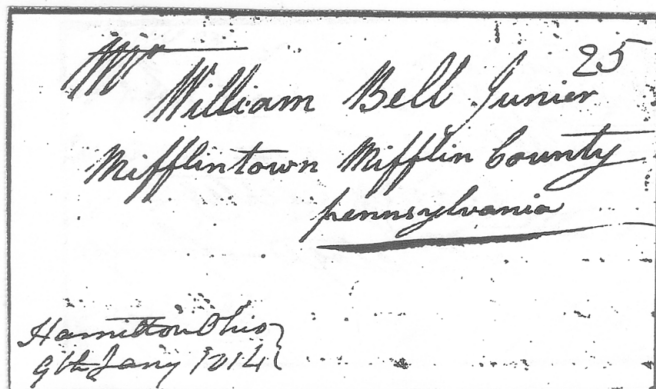 Mr 25
William Bell Junier
Mifflintown Mifflin County
pennsylvania
Hamilton Ohio
9th Jany 1814